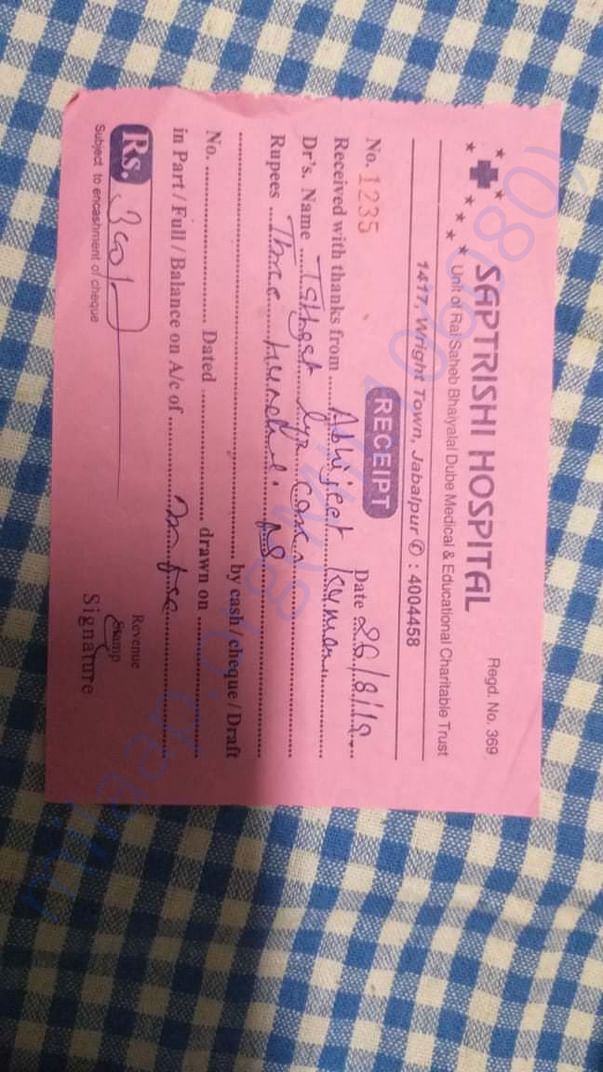 SAPTRISHI HOSPITAL
Regd. No. 369
Unit of Rai Saheb Bhaiyalal Dube Medical & Educational Charitable Trust
1417, Wright Town, Jabalpur ✆ : 4004458
RECEIPT
No. 1235 Date 26/8/19
Received with thanks from Abhijeet Kumar
Dr's. Name
Rupees Three hundred
by cash / cheque / Draft
No. Dated drawn on
in Part / Full / Balance on A/c of
Rs. 300/-
Subject to encashment of cheque
Revenue
Stamp
Signature